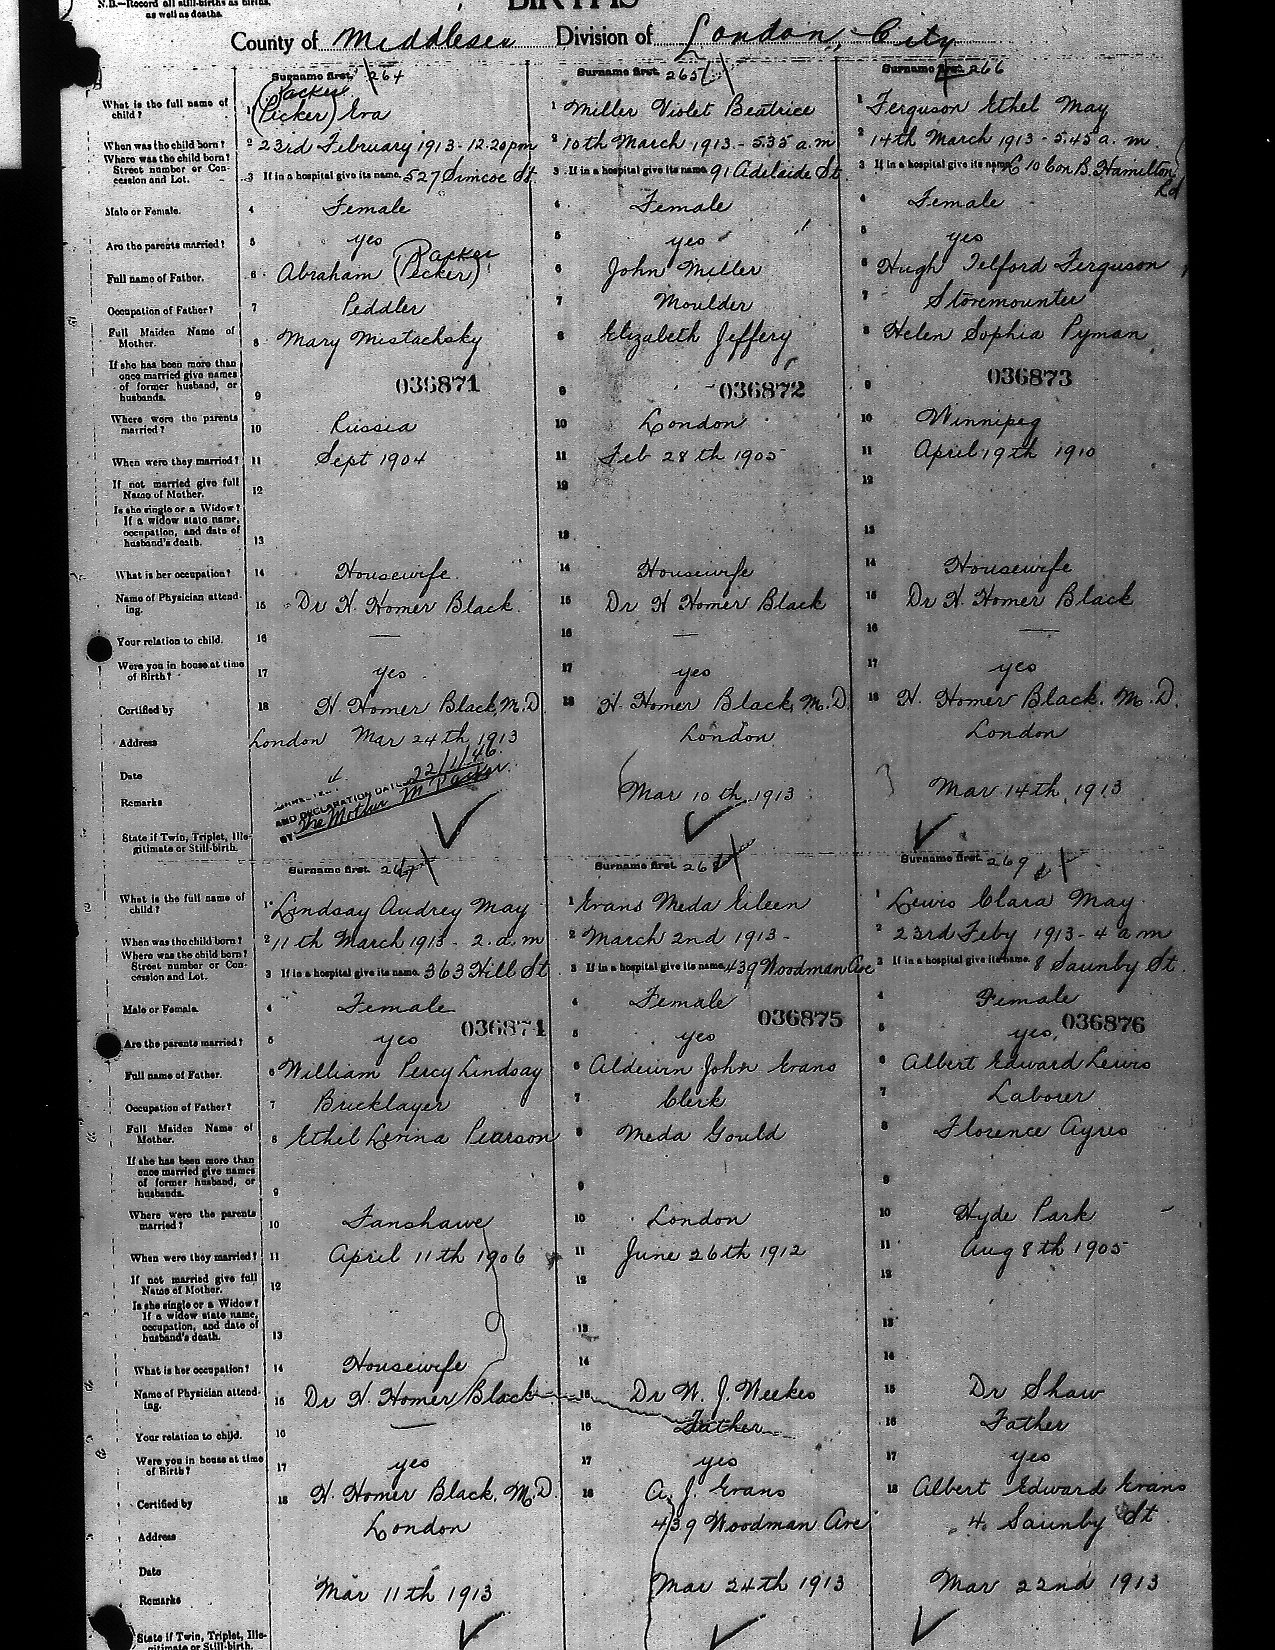 N.B.—Record all still-births as births,
as well as deaths.
BIRTHS
County of Middlesex Division of London, City
Surname first. 264 Surname first. 265 Surname first. 266
Packer
What is the full name of child? 1 (Picker) Eva 1 Miller Violet Beatrice 1 Ferguson Ethel May
When was the child born? 2 23rd February 1913-12.20 pm 2 10th March 1913.- 5.35 a.m 2 14th March 1913 - 5.45 a.m.
Where was the child born? Street number or Concession and Lot. 3 If in a hospital give its name. 527 Simcoe St. 3 If in a hospital give its name. 91 Adelaide St 3 If in a hospital give its name. L 10 Con B. Hamilton Rd
Male or Female. 4 Female 4 Female 4 Female
Are the parents married? 5 yes 5 yes 5 yes
Packer
Full name of Father. 6 Abraham (Picker) 6 John Miller 6 Hugh Telford Ferguson
Occupation of Father? 7 Peddler 7 Moulder 7 Stovemounter
Full Maiden Name of Mother. 8 Mary Mistachsky 8 Elizabeth Jeffery 8 Helen Sophia Pyman
If she has been more than once married give names of former husband, or husbands. 9 036871 9 036872 9 036873
Where were the parents married? 10 Russia 10 London 10 Winnipeg
When were they married? 11 Sept 1904 11 Feb 28th 1905 11 April 19th 1910
If not married give full Name of Mother. 12 12 12
Is she single or a Widow? If a widow state name, occupation, and date of husband's death. 13 13 13
What is her occupation? 14 Housewife. 14 Housewife 14 Housewife
Name of Physician attending. 15 Dr H. Homer Black. 15 Dr H Homer Black 15 Dr H. Homer Black
Your relation to child. 16 — 16 — 16 —
Were you in house at time of Birth? 17 yes 17 yes 17 yes
Certified by 18 H Homer Black, M.D 18 H. Homer Black, M.D. 18 H. Homer Black. M.D.
Address London Mar 24th 1913 London London
Date Mar 10th 1913 Mar 14th 1913
Remarks
AND DECLARATION DATED 22/1/46.
BY The Mother M Packer
State if Twin, Triplet, Illegitimate or Still-birth.
Surname first. 267 Surname first. 268 Surname first. 269
What is the full name of child? 1 Lindsay Audrey May 1 Evans Meda Eileen 1 Lewis Clara May
When was the child born? 2 11th March 1913 - 2. a.m 2 March 2nd 1913 - 2 23rd Feby 1913 - 4 a m
Where was the child born? Street number or Concession and Lot. 3 If in a hospital give its name. 363 Hill St 3 If in a hospital give its name. 439 Woodman Ave 3 If in a hospital give its name. 8 Saunby St.
Male or Female. 4 Female 4 Female 4 Female
036874 036875 036876
Are the parents married? 5 yes 5 yes 5 yes
Full name of Father. 6 William Percy Lindsay 6 Aldewin John Evans 6 Albert Edward Lewis
Occupation of Father? 7 Bricklayer 7 Clerk 7 Laborer
Full Maiden Name of Mother. 8 Ethel Lenna Pearson 8 Meda Gould 8 Florence Ayres
If she has been more than once married give names of former husband, or husbands. 9 9 9
Where were the parents married? 10 Fanshawe 10 London 10 Hyde Park
When were they married? 11 April 11th 1906 11 June 26th 1912 11 Aug 8th 1905
If not married give full Name of Mother. 12 12 12
Is she single or a Widow? If a widow state name, occupation, and date of husband's death. 13 13 13
What is her occupation? 14 Housewife 14 14
Name of Physician attending. 15 Dr H. Homer Black 15 Dr W. J. Weekes 15 Dr Shaw
Your relation to child. 16 — 16 Father 16 Father
Were you in house at time of Birth? 17 yes 17 yes 17 yes
Certified by 18 H. Homer Black, M.D. 18 A. J. Evans 18 Albert Edward Evans
Address London 439 Woodman Ave 4 Saunby St
Date Mar 11th 1913 Mar 24th 1913 Mar 22nd 1913
Remarks
State if Twin, Triplet, Illegitimate or Still-birth.